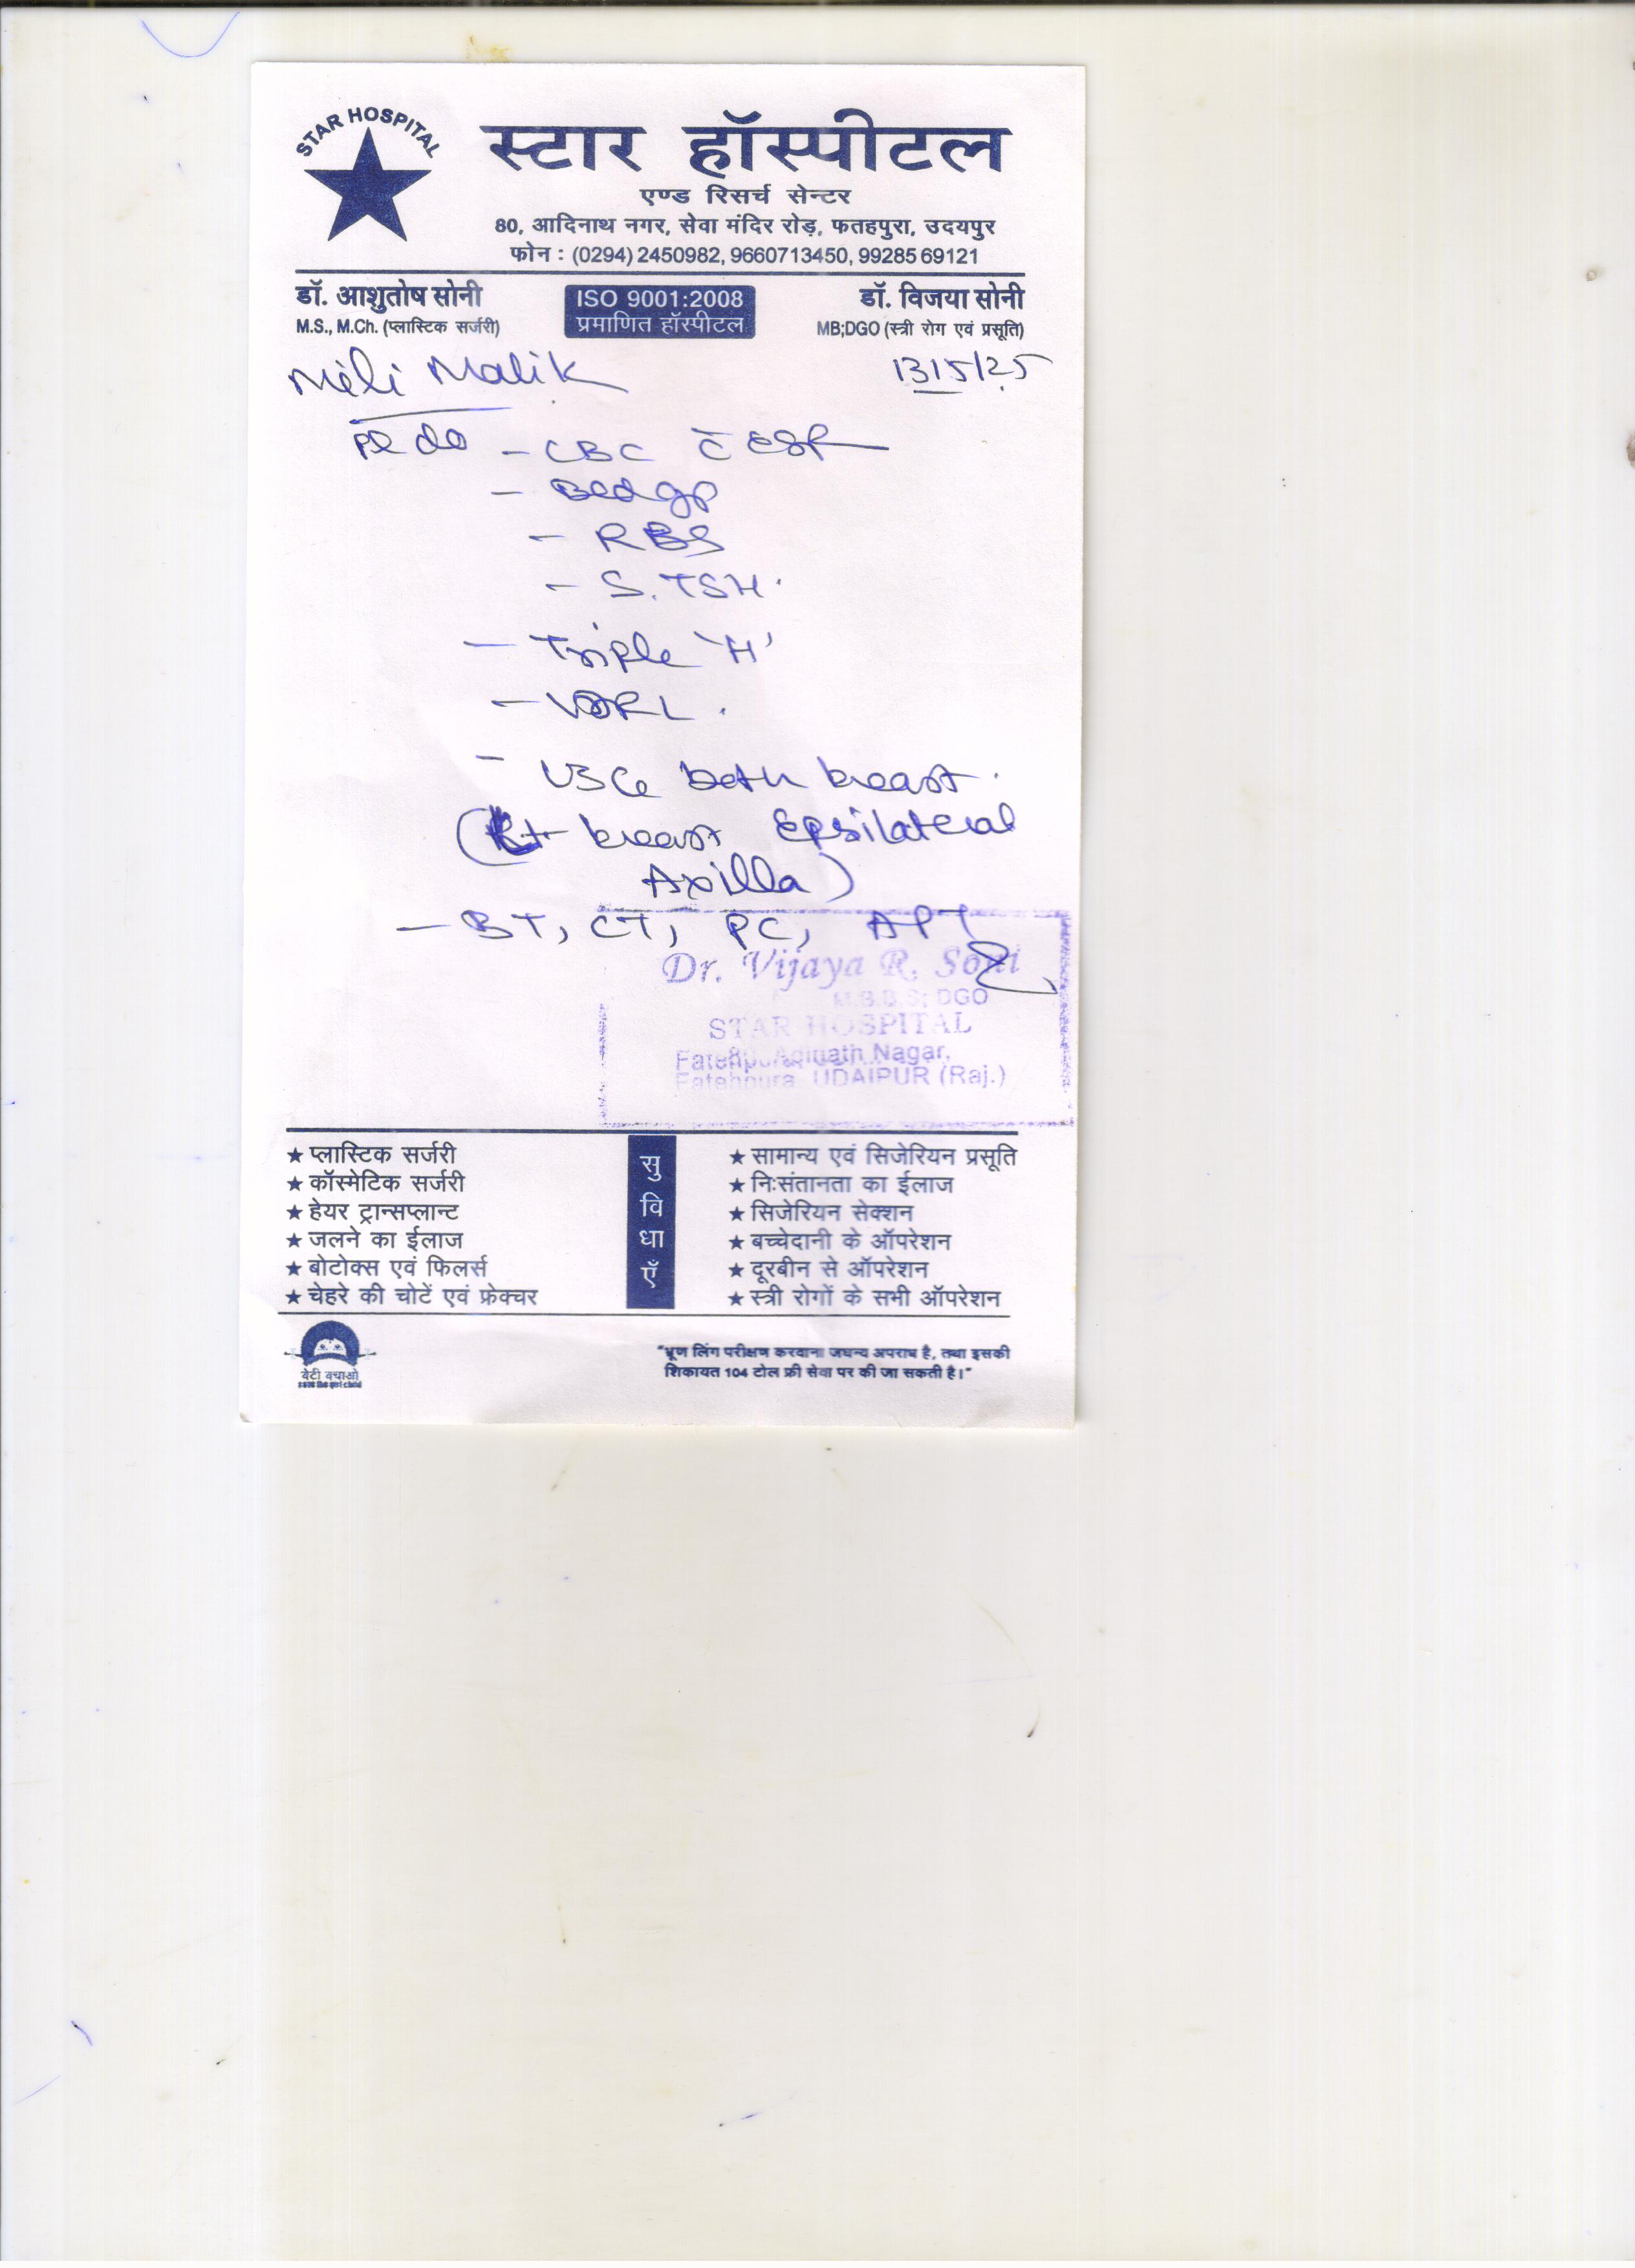 STAR HOSPITAL
स्टार हॉस्पीटल
एण्ड रिसर्च सेन्टर
80, आदिनाथ नगर, सेवा मंदिर रोड़, फतहपुरा, उदयपुर
फोन : (0294) 2450982, 9660713450, 99285 69121
डॉ. आशुतोष सोनी
M.S., M.Ch. (प्लास्टिक सर्जरी)
ISO 9001:2008
प्रमाणित हॉस्पीटल
डॉ. विजया सोनी
MB;DGO (स्त्री रोग एवं प्रसूति)
Mili Malik 13/5/25
Pl do - CBC c̄ ESR
- Bld gp
- RBS
- S. TSH.
- Triple 'H'
- VDRL.
- USG both breast.
( breast Epsilateral
Axilla)
- BT, CT, PC, APT
Dr. Vijaya R. Soni
M.B.B.S; DGO
STAR HOSPITAL
Adinath Nagar,
Fatehpura, UDAIPUR (Raj.)
★ प्लास्टिक सर्जरी
★ कॉस्मेटिक सर्जरी
★ हेयर ट्रान्सप्लान्ट
★ जलने का ईलाज
★ बोटोक्स एवं फिलर्स
★ चेहरे की चोटें एवं फ्रेक्चर
सुविधाएँ
★ सामान्य एवं सिजेरियन प्रसूति
★ निःसंतानता का ईलाज
★ सिजेरियन सेक्शन
★ बच्चेदानी के ऑपरेशन
★ दूरबीन से ऑपरेशन
★ स्त्री रोगों के सभी ऑपरेशन
बेटी बचाओ
save the girl child
"भ्रूण लिंग परीक्षण करवाना जघन्य अपराध है, तथा इसकी
शिकायत 104 टोल फ्री सेवा पर की जा सकती है।"